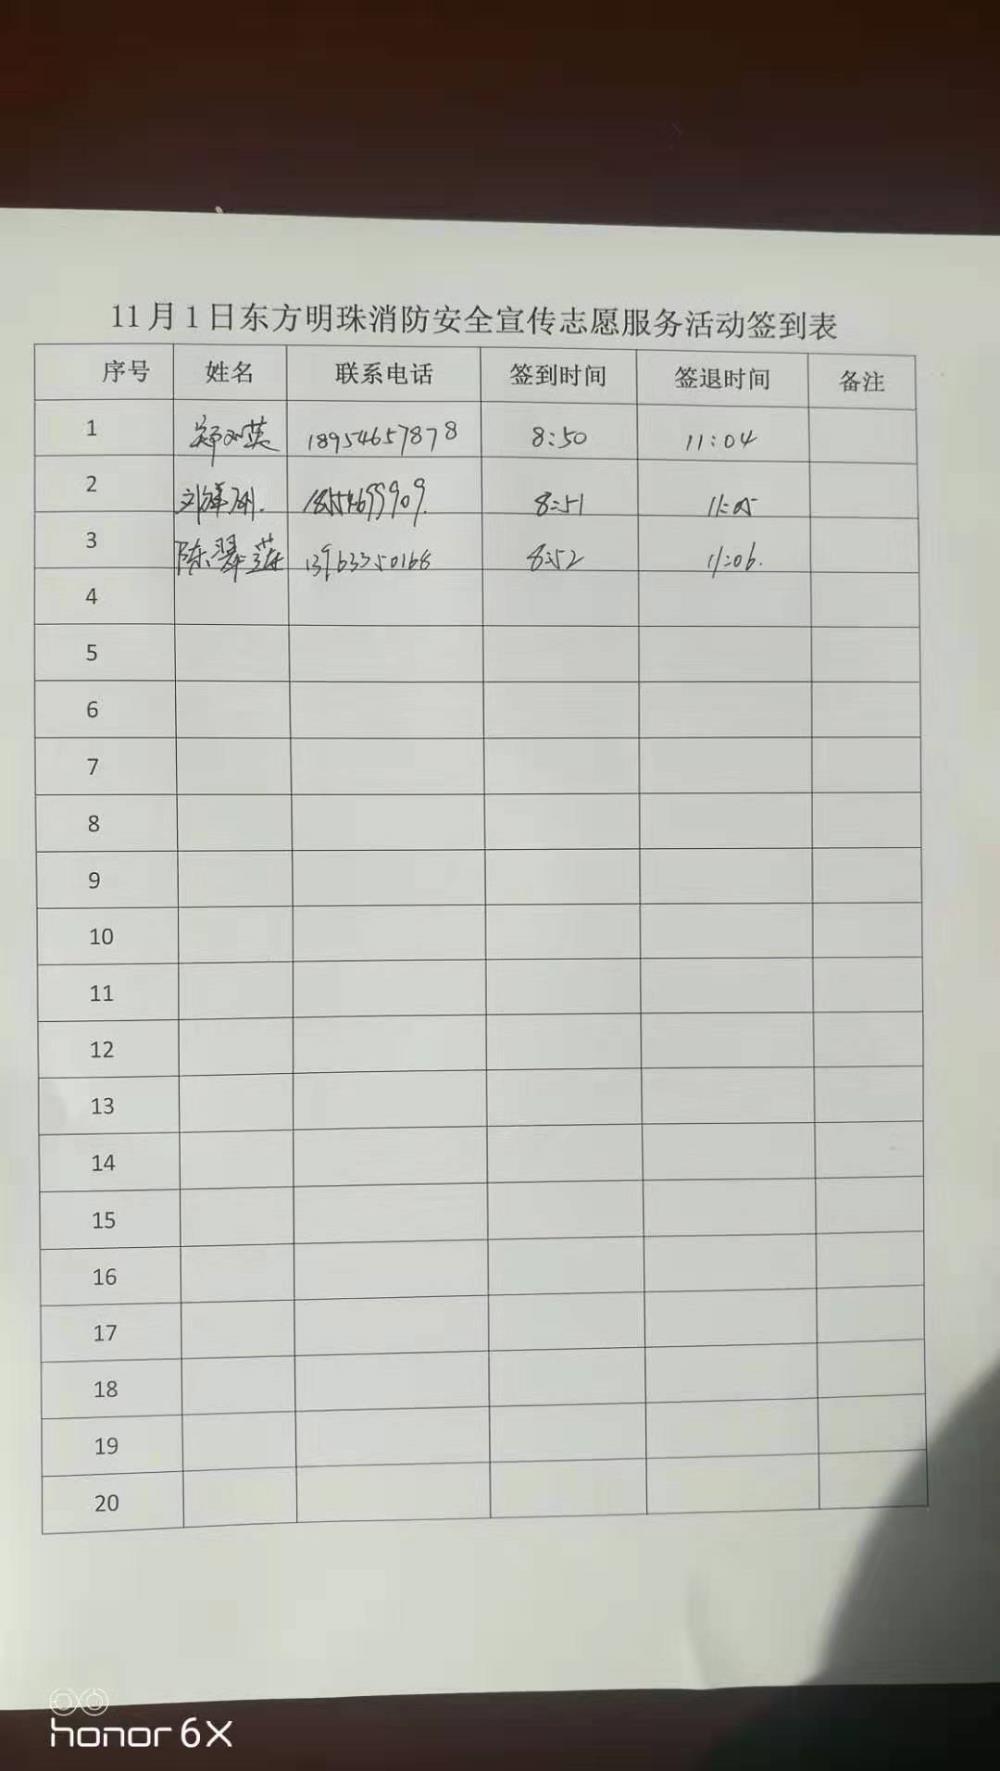 11月1日东方明珠消防安全宣传志愿服务活动签到表
序号 姓名 联系电话 签到时间 签退时间 备注
1 郑 英 18954657878 8:50 11:04
2 刘 8:51 11:05
3 陈翠莲 13963350168 8:52 11:06.
4
5
6
7
8
9
10
11
12
13
14
15
16
17
18
19
20
honor 6X